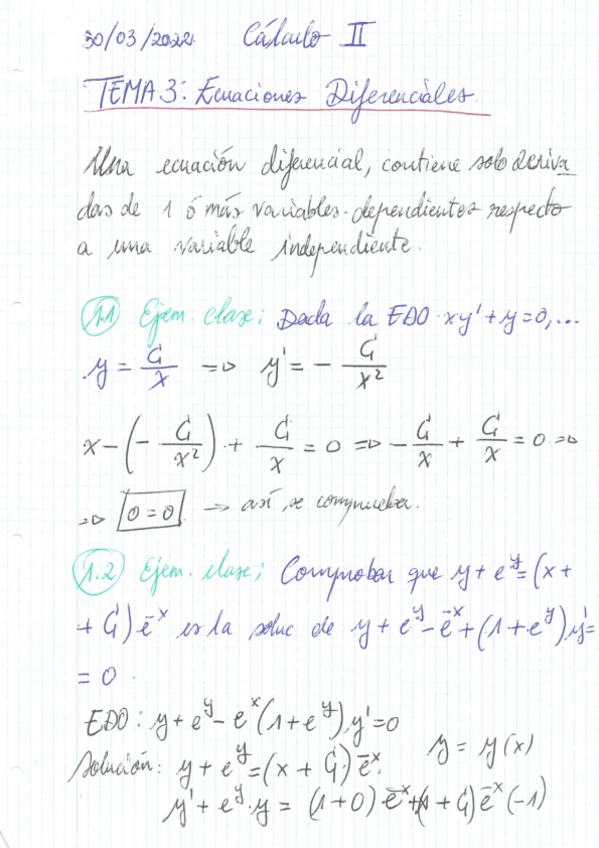 30/03/2022. Cálculo II
TEMA 3: Ecuaciones Diferenciales.
Una ecuación diferencial, contiene solo deriva
das de 1 ó más variables dependientes respecto
a una variable independiente.
1.1 Ejem. clase: Dada la EDO xy' + y = 0, ...
y = C₁/x => y' = - C₁/x²
x - (- C₁/x²) + C₁/x = 0 => - C₁/x + C₁/x = 0 =>
=> 0 = 0 → así se comprueba.
1.2 Ejem. clase; Comprobar que y + e^y = (x +
+ C₁) e^-x es la soluc de y + e^y - e^-x + (1 + e^y) y' =
= 0.
EDO: y + e^y - e^x (1 + e^y) y' = 0
Solución: y + e^y = (x + C₁) e^-x. y = y(x)
y' + e^y · y = (1 + 0) e^-x + (x + C₁) e^-x (-1)